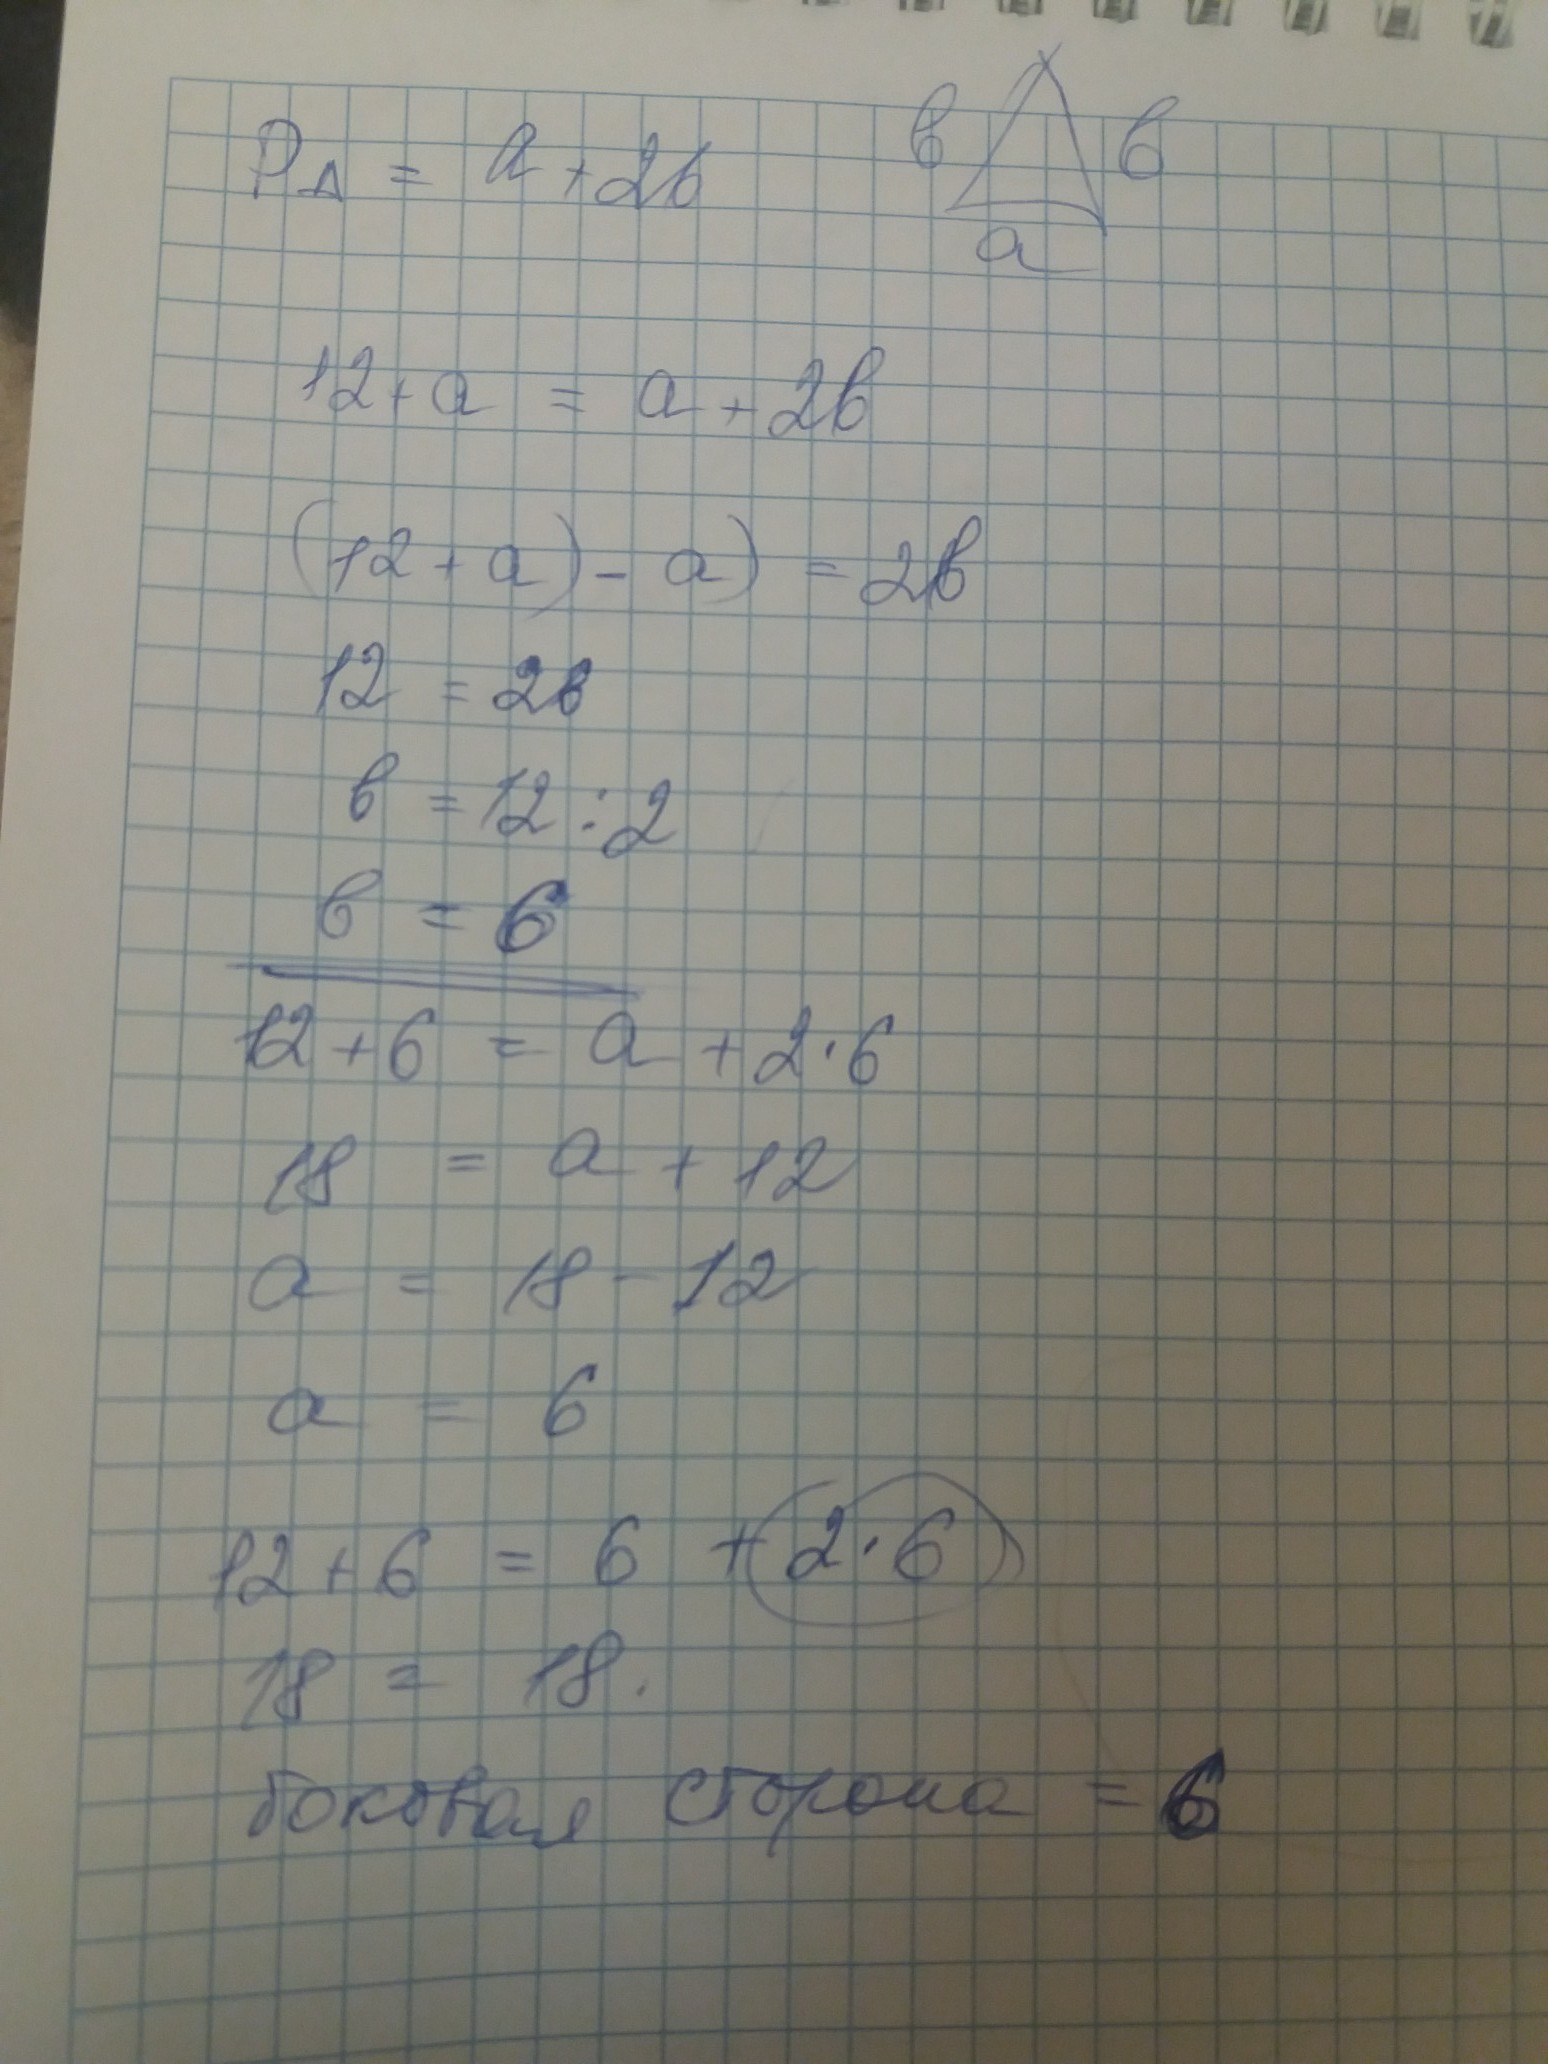 P△ = a + 2в
в в
a
12 + a = a + 2в
(12 + a) - a) = 2в
12 = 2в
в = 12 : 2
в = 6
12 + 6 = a + 2 · 6
18 = a + 12
a = 18 - 12
a = 6
12 + 6 = 6 + 2 · 6
18 = 18.
боковая сторона = 6